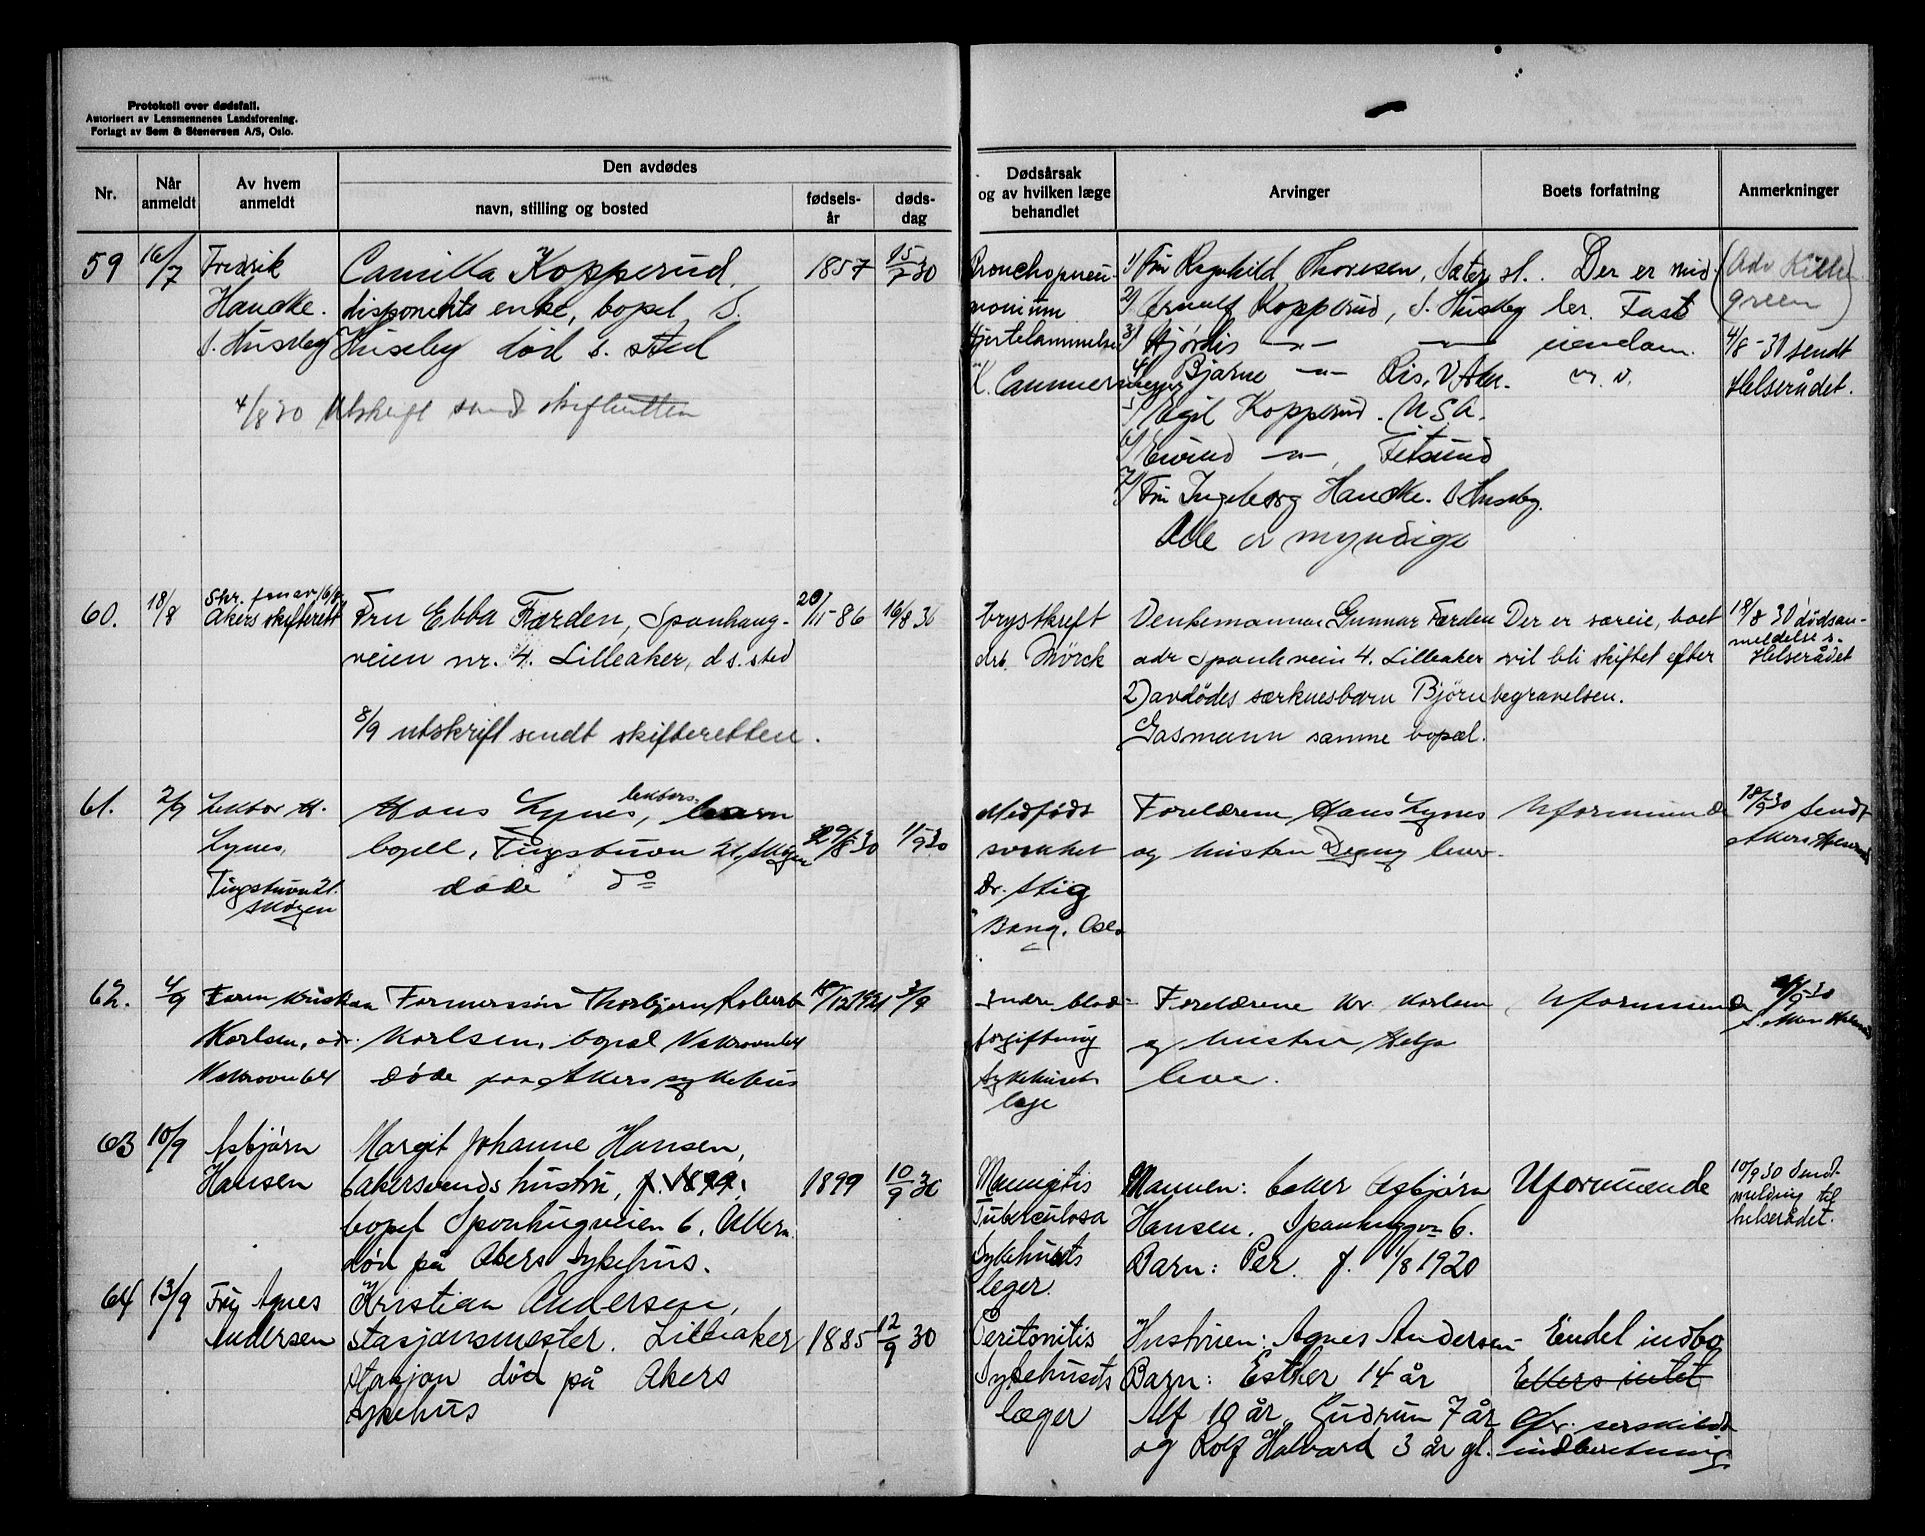 Protokoll over dødsfall.
Autorisert av Lensmennenes Landsforening.
Forlagt av Sem & Stenersen A/S, Oslo.
Nr.
Når anmeldt
Av hvem anmeldt
Den avdødes
navn, stilling og bosted
fødsels-år
døds-dag
Dødsårsak og av hvilken læge behandlet
Arvinger
Boets forfatning
Anmerkninger
59 16/7 Fredrik Camilla Kopperud, 1857 15/7 30
Handke. disponents enke, bopel S.
S. Huseby Huseby død s. sted
4/8 30 Utskrift send skifteretten
Bronchopneu-
monium
Hjertelammelse
1) Fru Ragnhild Thoresen, Sæter st.
2) Arnulf Kopperud, S. Huseby
3) Hjørdis -"- -"-
4) Bjarne -"- Ris, V. Aker.
5) Egil Kopperud. U.S.A.
6) Eivind -"-, Fetsund
7) Fru Ingeborg Handke. S Huseby.
Alle er myndige
Der er mid-
ler. Fast
eiendom.
4/8-30 sendt
Helserådet.
60. 18/8 Akers skifterett Fru Ebba Færden, Sponhaug- 86 16/8 30
veien nr. 4. Lilleaker, d s. sted
8/9 utskrift sendt skifteretten.
brystkreft
Mørck
Venkemannen Gunnar Færden
adr Sponhvein 4. Lilleaker
2) avdødes særkuesbarn Bjørn
Gasmann samme bopæl.
Der er særeie, boet
vil bli skiftet efter
begravelsen.
18/8 30 dødsan-
meldelse s.
Helserådet
61. 2/9 Lektor H. Hans Lynes, lektors barn
Lynes, bopel, Tingstuvn 21, Skøyen 29/8 30 1/9 30
Tingstuvn 21. døde do
Skøyen
Medfødt
svakhet
Dr. Stig
Bang. Oslo
Forelærene Hans Lynes
og hustru Dagny lever.
Uformuende
18/9 30 Sendt
Akers Helseråd
62. 4/9 Faren Kristian Formerssøn Thorbjørn Robert 18/12 1921 3/9
Karlsen, adr. Karlsen, bopæl Vækerøvn 64
Vækerøvn 64 døde paa Akers sykehus
Indre blod-
forgiftning
Sykehusets
læge
Forelærene Kr. Karlsen
og hustru Helga
lever.
Uformuende
63 10/9 Asbjørn Margit Johanne Hansen,
Hansen bakersvends hustru, f. 1899, 1899 10/9 30
bopel Sponhugveien 6. Ullern
død på Akers Sykehus.
Meningitis
Tuberculosa
Sykehusets
leger.
Mannen: baker Asbjørn
Hansen. Sponhuggvn 6.
Barn: Per. f. 1/8 1920
Uformuende
10/9 30 Sendt
melding til
helserådet.
64 13/9 Fru Agnes Kristian Andersen,
Andersen stasjonsmester. Lilleaker 1885 12/9 30
stasjon død på Akers
sykehus
Peritonitis
Sykehusets
læger
Hustruen: Agnes Andersen
Barn: Esther 14 år
Alf 10 år, Gudrun 7 år
og Rolf Halvard 3 år gl.
Endel indbo
Ellers intet
Cfr. serskildt
indberetning.